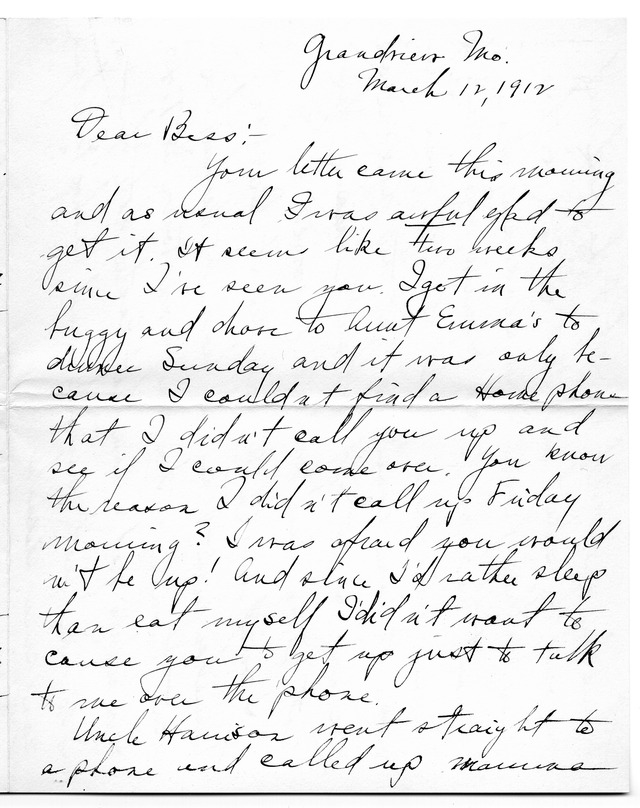 Grandview Mo.
March 12, 1912
Dear Bess:-
Your letter came this morning
and as usual I was awful glad to
get it. It seems like two weeks
since I've seen you. I got in the
buggy and drove to Aunt Emma's to
dinner Sunday and it was only be-
cause I couldn't find a Home phone
that I didn't call you up and
see if I could come over. You know
the reason I didn't call up Friday
morning? I was afraid you would
n't be up! And since I'd rather sleep
than eat myself I didn't want to
cause you to get up just to talk
to me over the phone.
Uncle Harrison went straight to
a phone and called up mamma